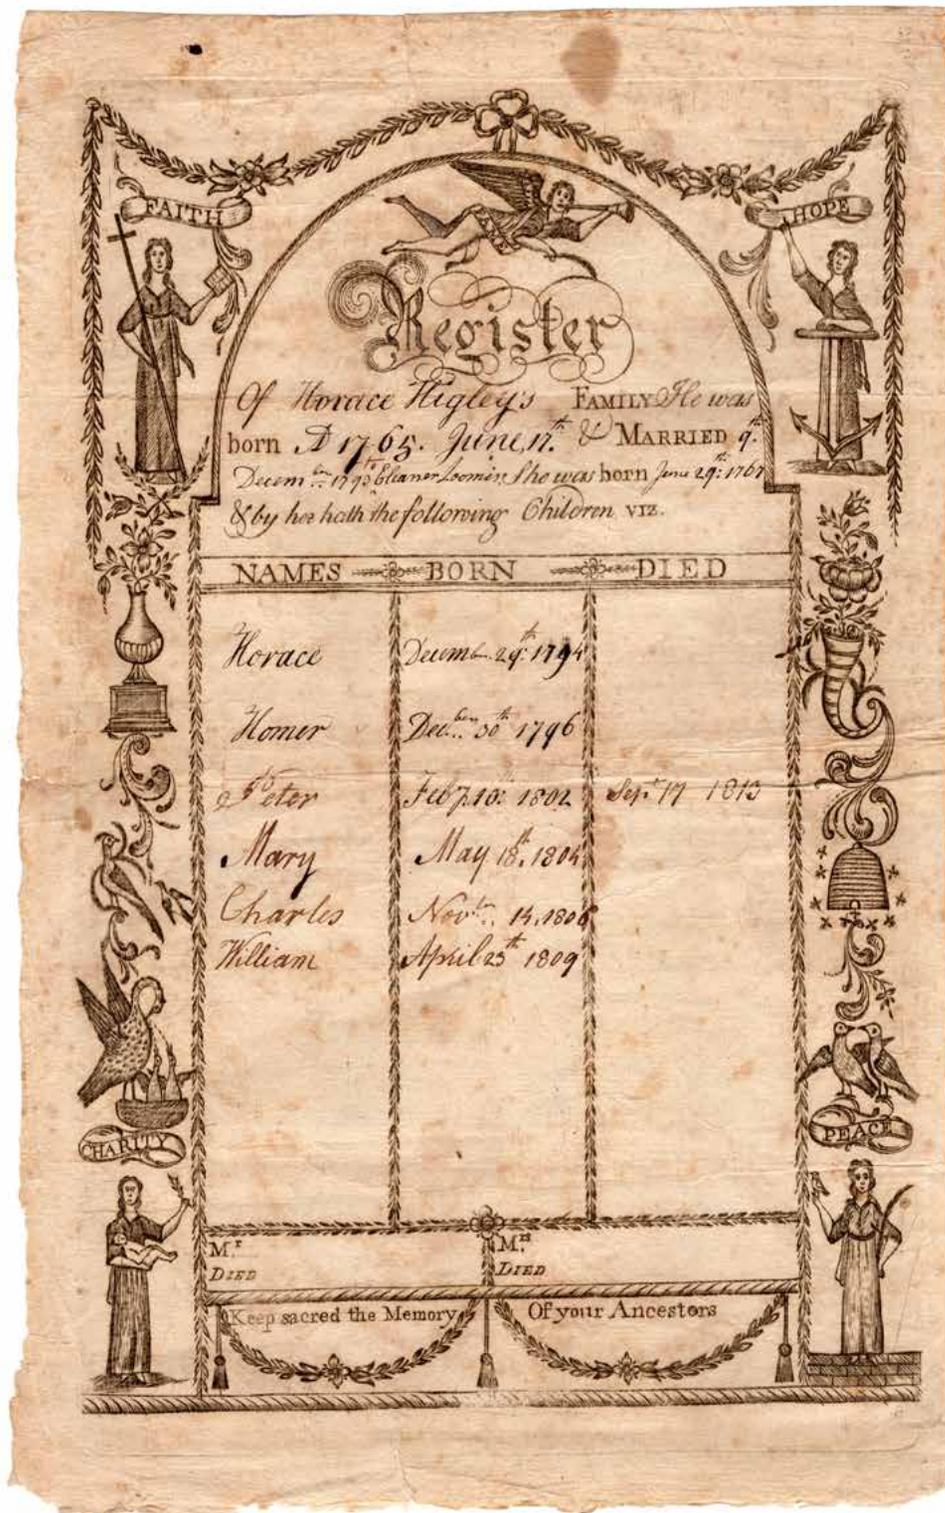 FAITH
HOPE
Register
Of Horace Higley's FAMILY He was
born A 1765. June, 17.th & MARRIED 9.th
Decem.ber 1793 Eleaner Loomis, She was born June 29.th 1767
& by her hath the following Children VIZ.
NAMES BORN DIED
Horace Decembr. 29.th 1794
Homer Dec.ber 30th 1796
Peter Feby. 10th 1802 Sept. 17 1813
Mary May 18th. 1804
Charles Nov.ber 14. 1806
William April 23th 1809
CHARITY
PEACE
M.r M.rs
DIED DIED
Keep sacred the Memory Of your Ancestors